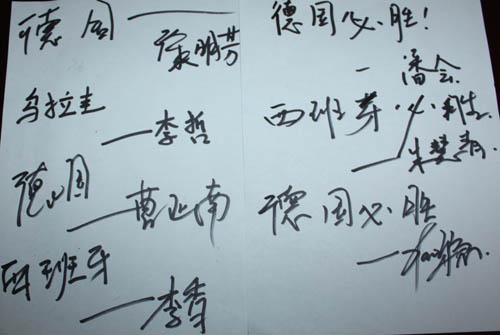 德国
——徐明芳
乌拉圭
——李哲
德国
——曹亚南
西班牙
——李秀
德国必胜!
—潘会
西班牙必胜.
——朱慧青.
德国必胜